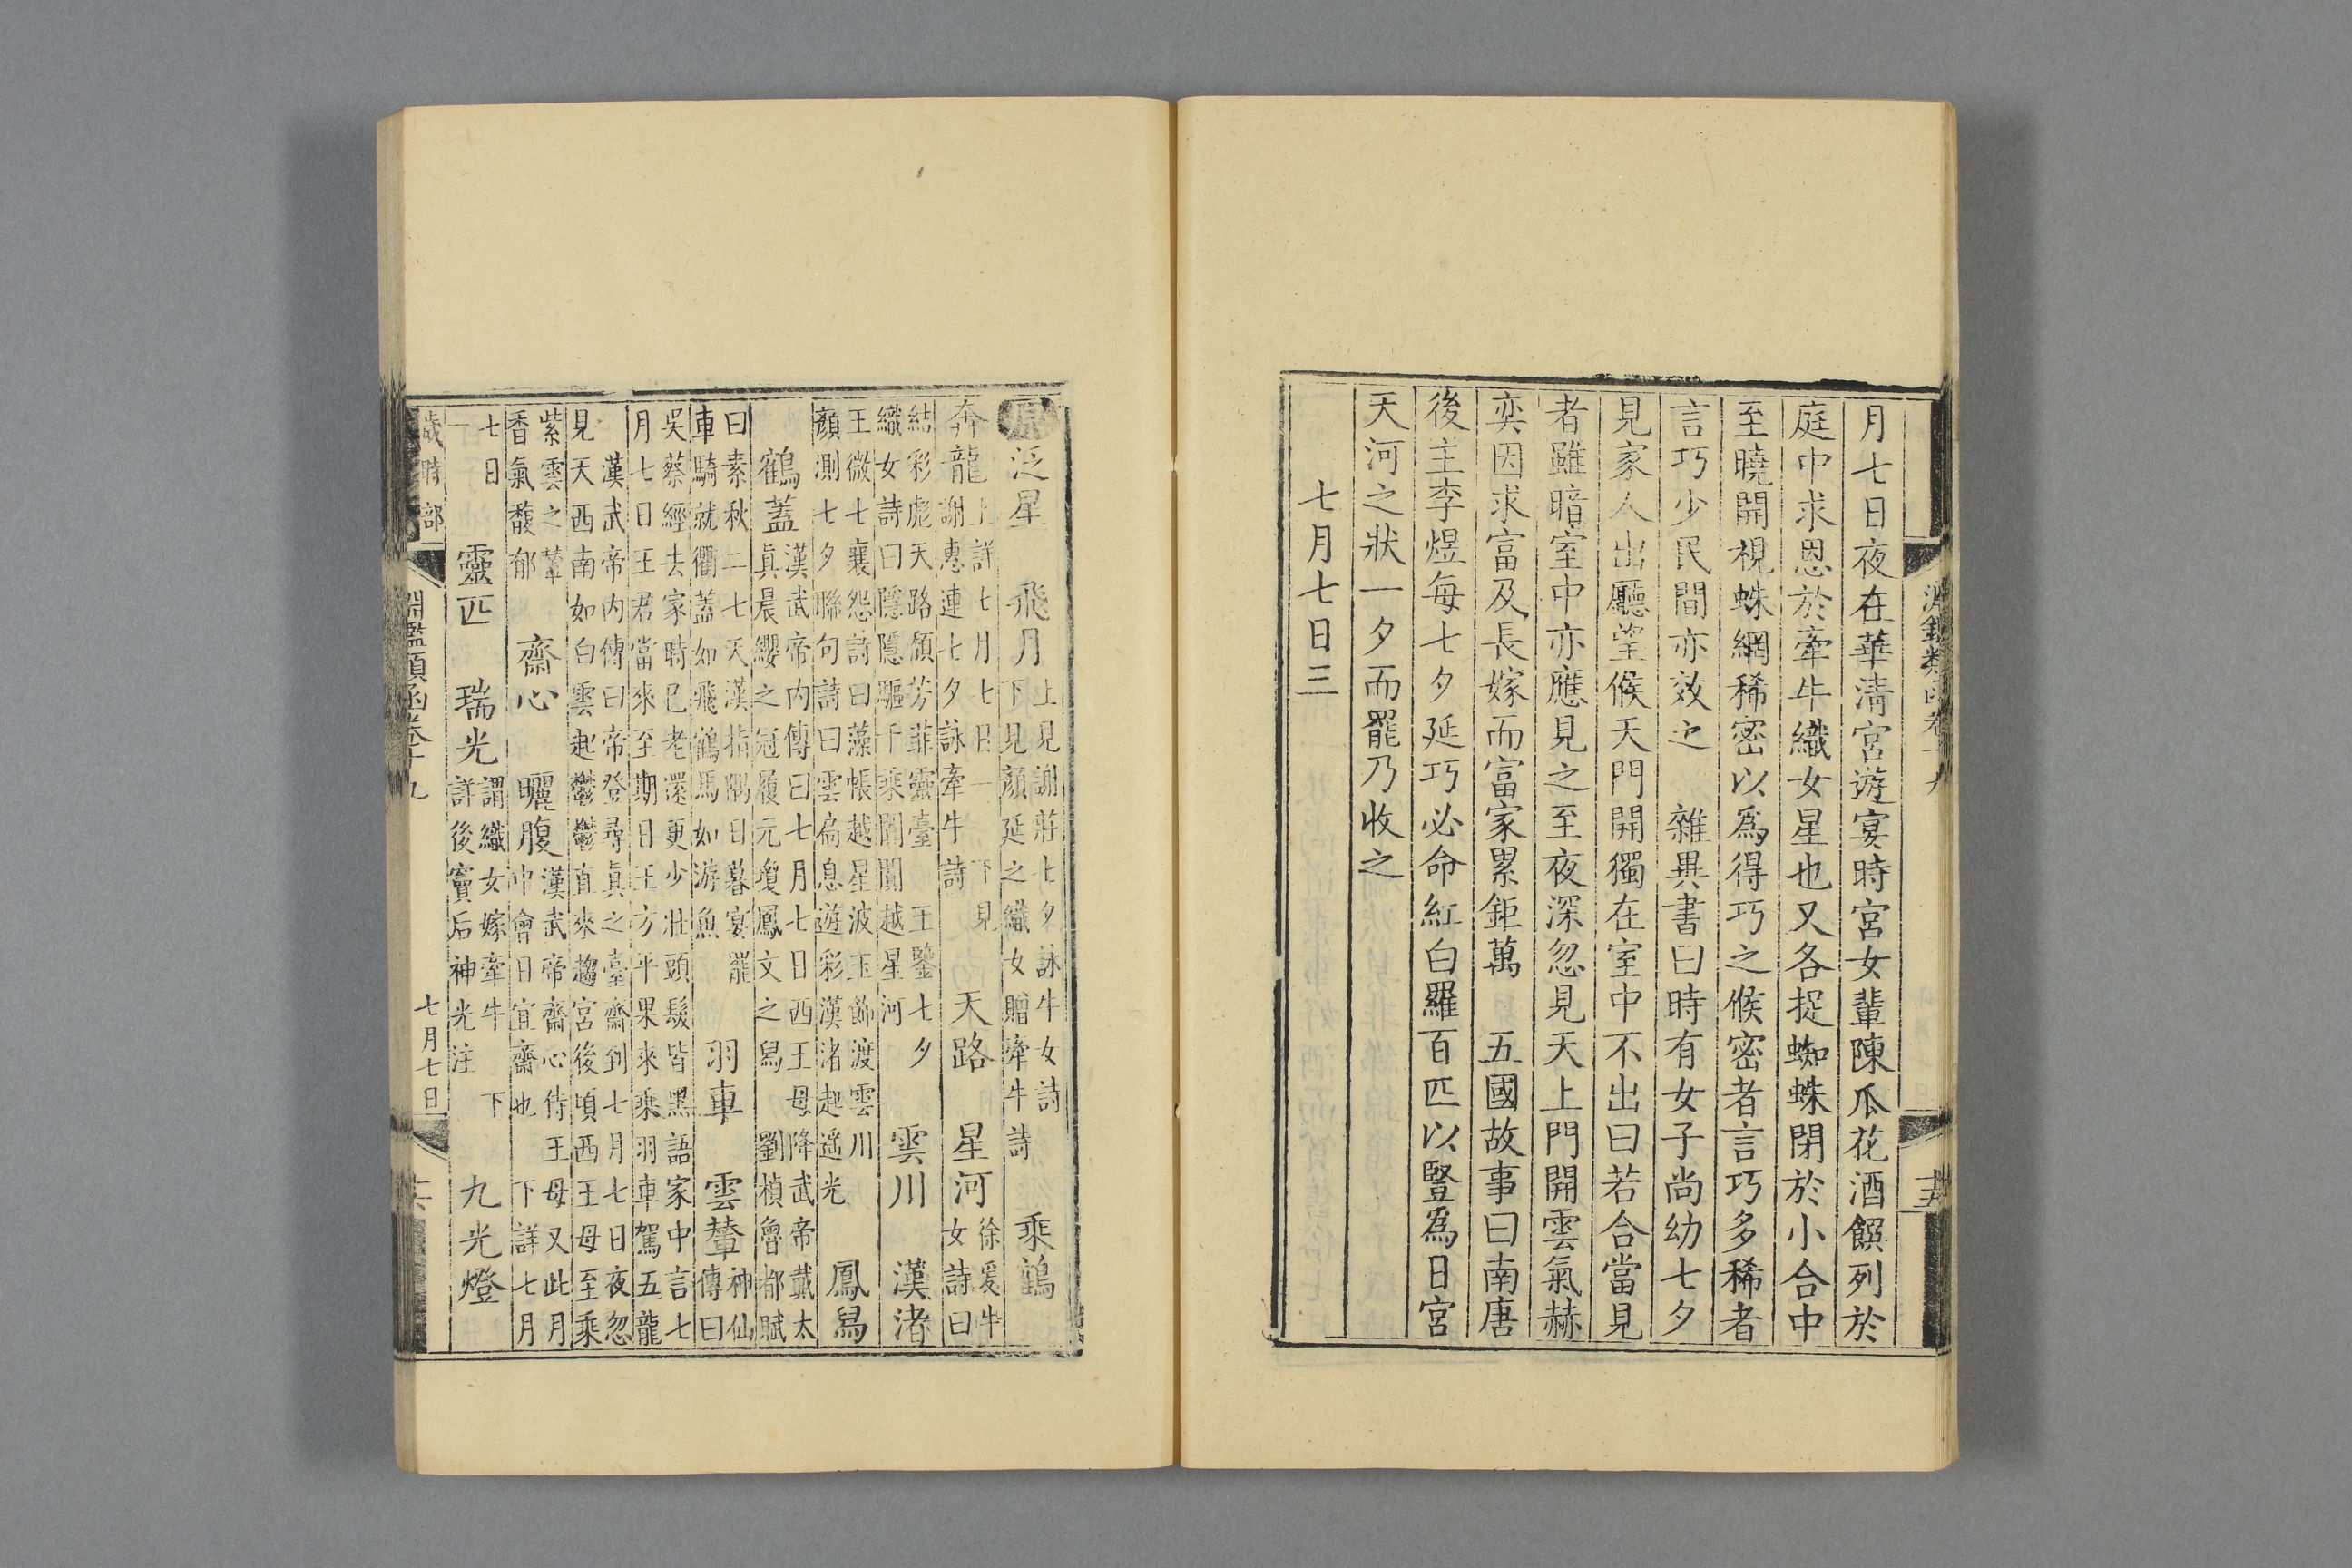 月七日夜在華清宮遊宴時宮女輩陳瓜花酒饌列於
庭中求恩於牽牛織女星也又各捉蜘蛛閉於小合中
至曉開視蛛網稀密以爲得巧之候密者言巧多稀者
言巧少民間亦效之　雜異書曰時有女子尚幼七夕
見家人出廳望候天門開獨在室中不出曰若合當見
者雖暗室中亦應見之至夜深忽見天上門開雲氣赫
奕因求富及長嫁而富家累鉅萬　五國故事曰南唐
後主李煜每七夕延巧必命紅白羅百匹以豎爲日宮
天河之狀一夕而罷乃收之
七月七日三
原泛星　飛月上見謝莊七夕詠牛女詩下見顏延之織女贈牽牛詩　乘鶴
奔龍上詳七月七日一下見謝惠連七夕詠牽牛詩　天路　星河徐爰牛女詩曰
結彩彪天路頒芳菲靈臺　王鑒七夕織女詩曰隱隱驅千乘闐闐越星河　雲川　漢渚
王微七襄怨詩曰藻帳越星波玉飾渡雲川顏測七夕聯句詩曰雲扃息遊彩漢渚起遥光　鳳舄
鶴蓋漢武帝內傳曰七月七日西王母降武帝戴太眞晨纓之冠履元瓊鳳文之舄　劉楨魯都賦
曰素秋二七天漢指隅日暮宴罷車騎就衢蓋如飛鶴馬如游魚　羽車　雲輦神仙傳曰
吳蔡經去家時已老還更少壯頭髮皆黑語家中言七月七日王君當來至期日王方平果來乘羽車駕五龍
漢武帝內傳曰帝登尋眞之臺齋到七月七日夜忽見天西南如白雲起鬱鬱直來趨宮後頃西王母至乘
紫雲之輦香氣馥郁　齋心　曬腹漢武帝齋心侍王母又此月中會日宜齋也　下詳七月
七日一　靈匹　瑞光謂織女嫁牽牛　下詳後竇后神光注　九光燈
歲時部
淵鑑類函卷十九
七月七日